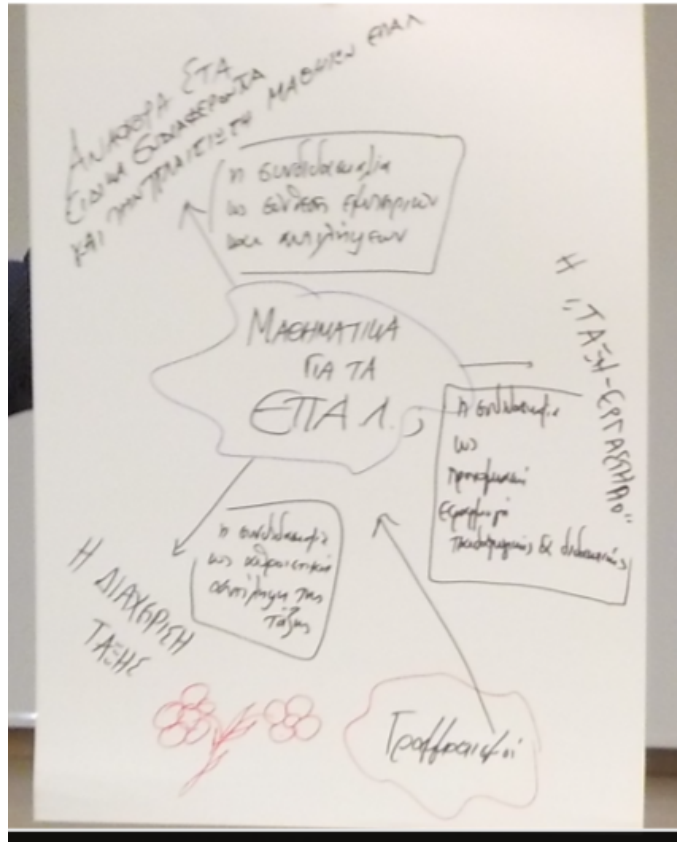 ΑΝΑΦΟΡΑ ΣΤΑ
ΕΙΔΙΚΑ ΕΝΔΙΑΦΕΡΟΝΤΑ
ΚΑΙ ΜΑΘΗΤΩΝ ΕΠΑΛ
η συνδιδασκαλία
ως σύνθεση εμπειριών
και αντιλήψεων
ΜΑΘΗΜΑΤΙΚΑ
ΓΙΑ ΤΑ
ΕΠΑ.Λ.;
Η "ΤΑΞΗ-ΕΡΓΑΣΤΗΡΙΟ"
η συνδιδασκαλία
ως
εφαρμογή
παιδαγωγικής & διδακτικής
η συνδιδασκαλία
ως
αντίληψη της
τάξης
Η ΔΙΑΧΕΙΡΙΣΗ
ΤΑΞΗΣ
Γραμματισμοί